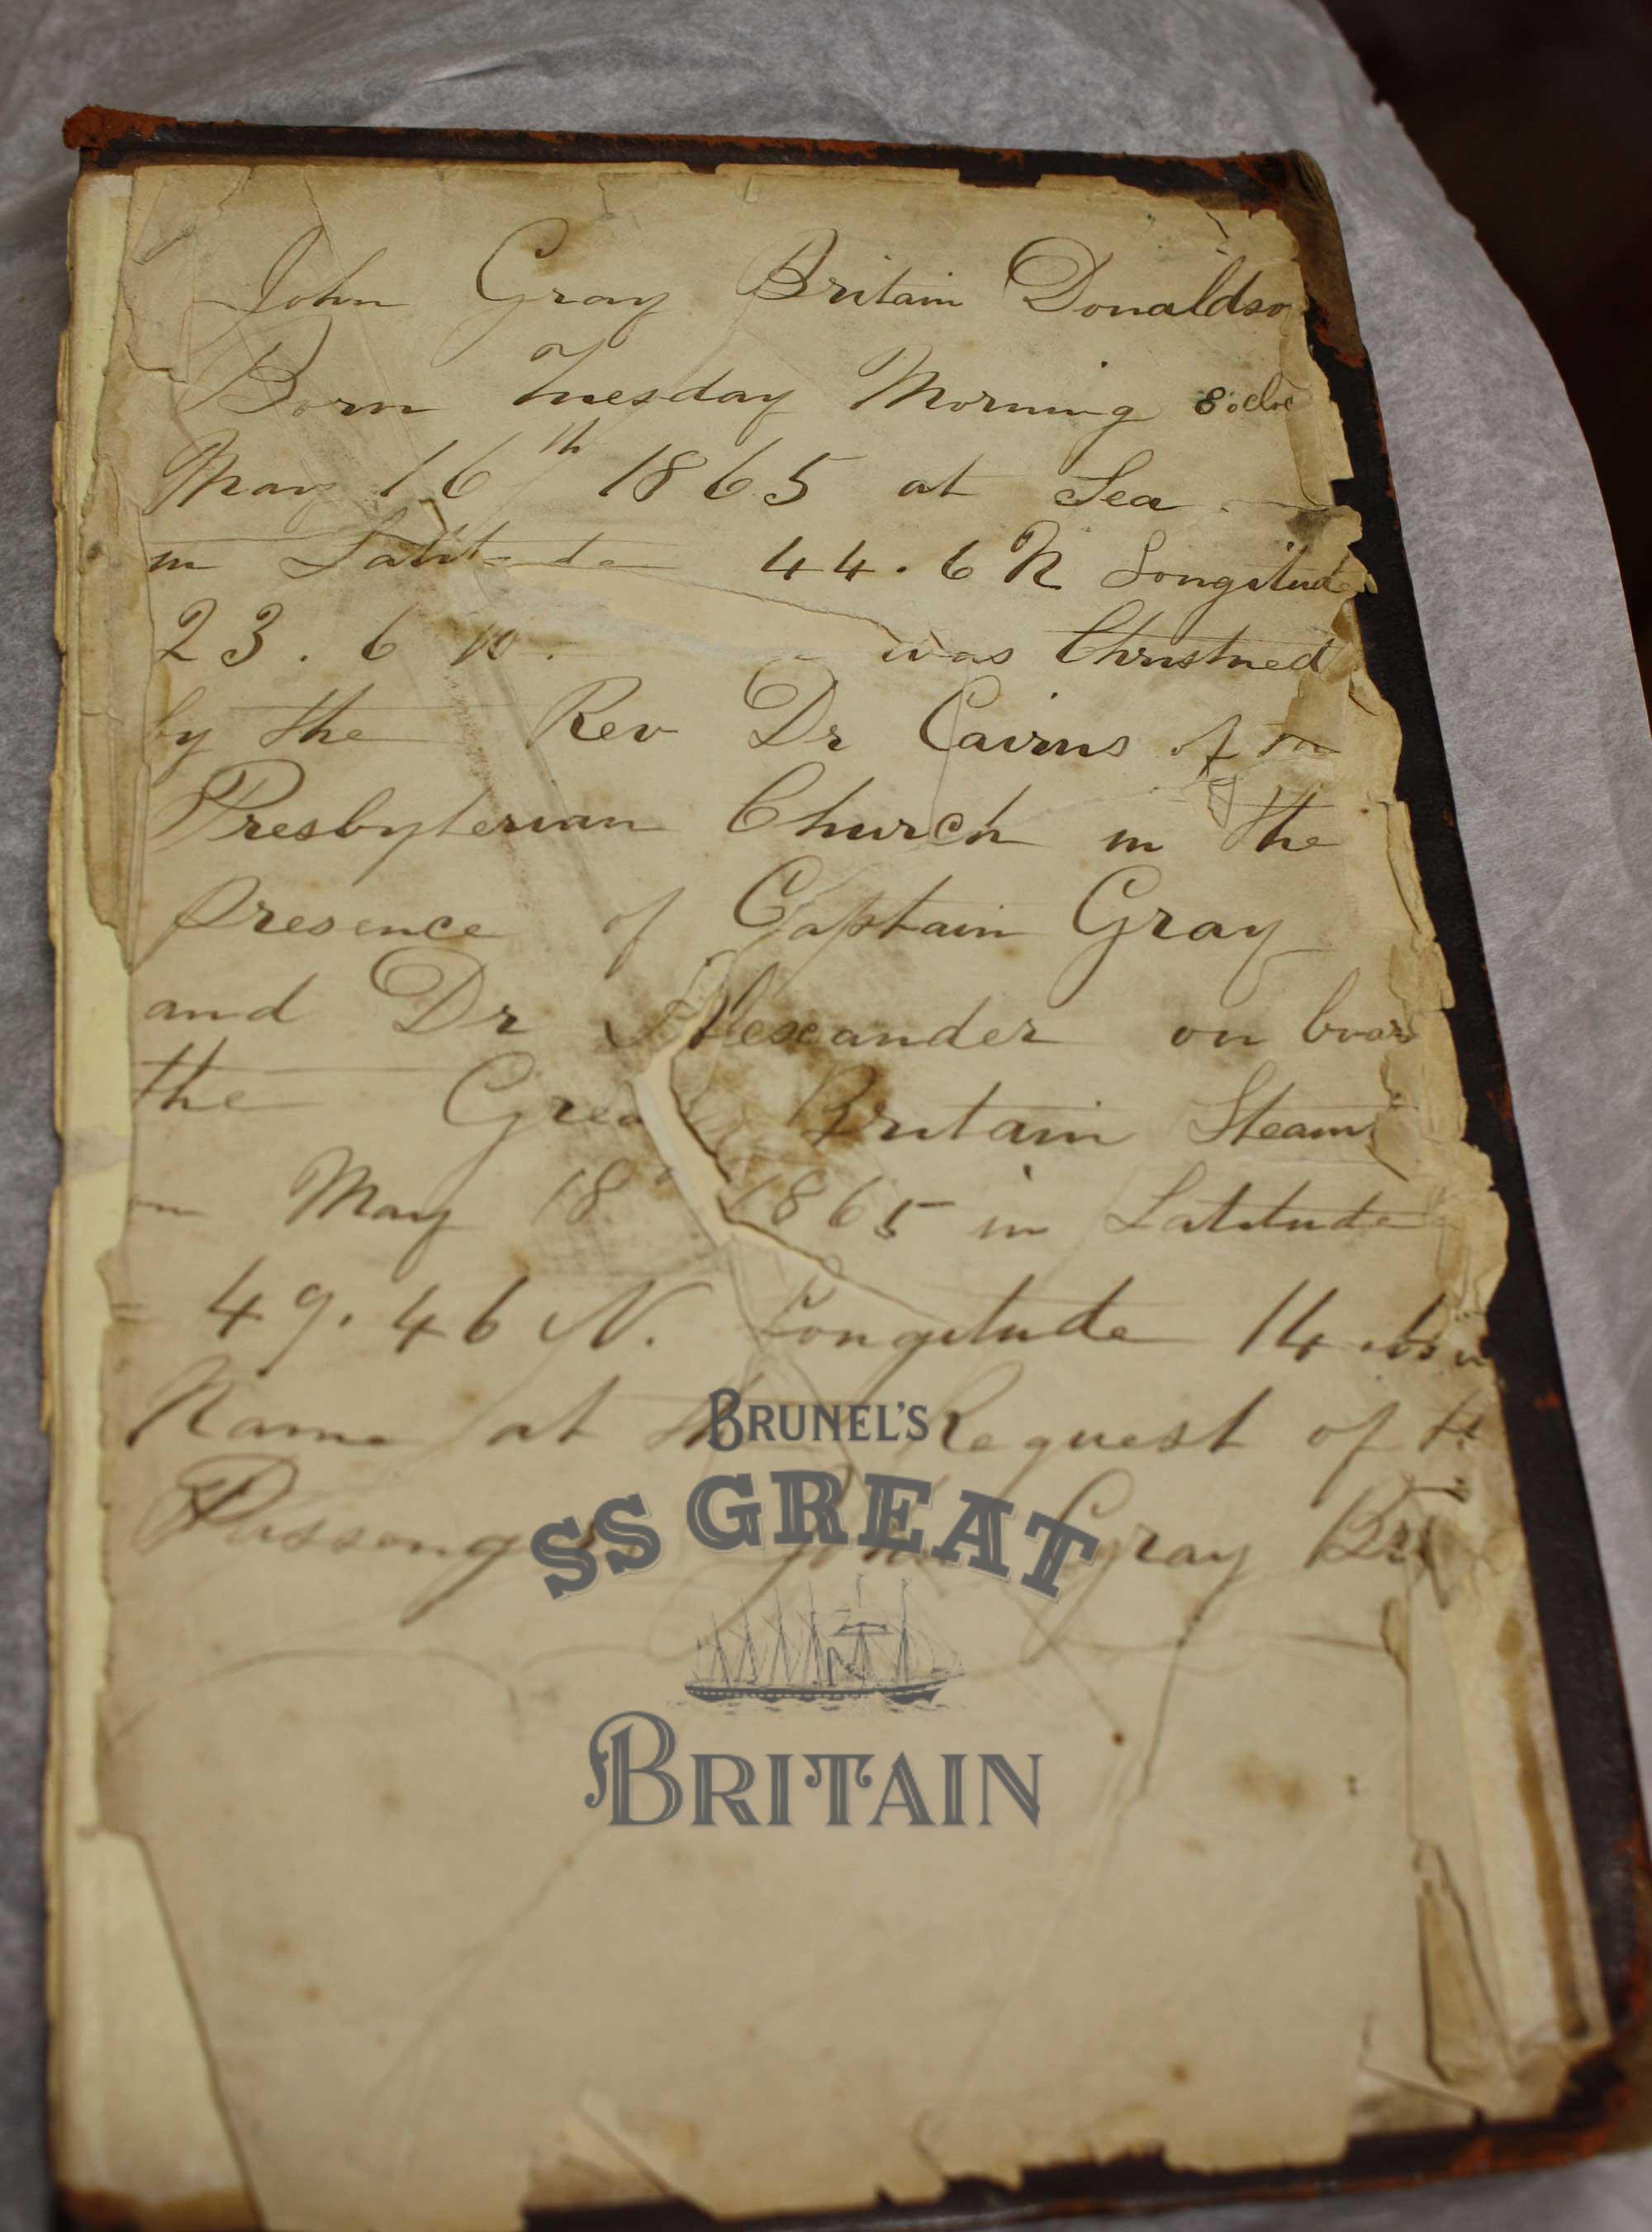 John Gray Britain Donaldso
Born Tuesday Morning 8 oclo
May 16th 1865 at Sea
in Latitude 44.6 N Longitud
23.6 W. was Christned
by the Rev Dr Cairns of
Presbyterian Church in the
presence of Captain Gray
and Dr Alexander on boar
the Great Britain Steam
May 18 1865 in Latitude
49.46 N. Longitude 14
Name at the Request of
Passengers John Gray Bri
BRUNEL'S
SS GREAT
BRITAIN